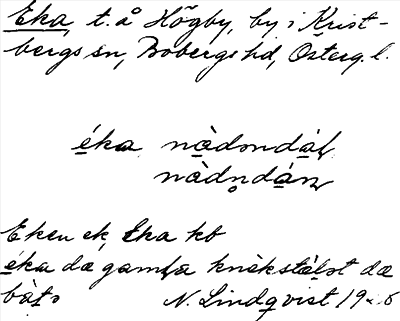 Eka, t. å Högby, by i Krist-
bergs sn, Bobergs hd, Österg. l.
éka nàdondáf
nàdn̥dán
Eken ek, Eka kb
éka dæ gamla knèkstǽlət dæ
N. Lindqvist